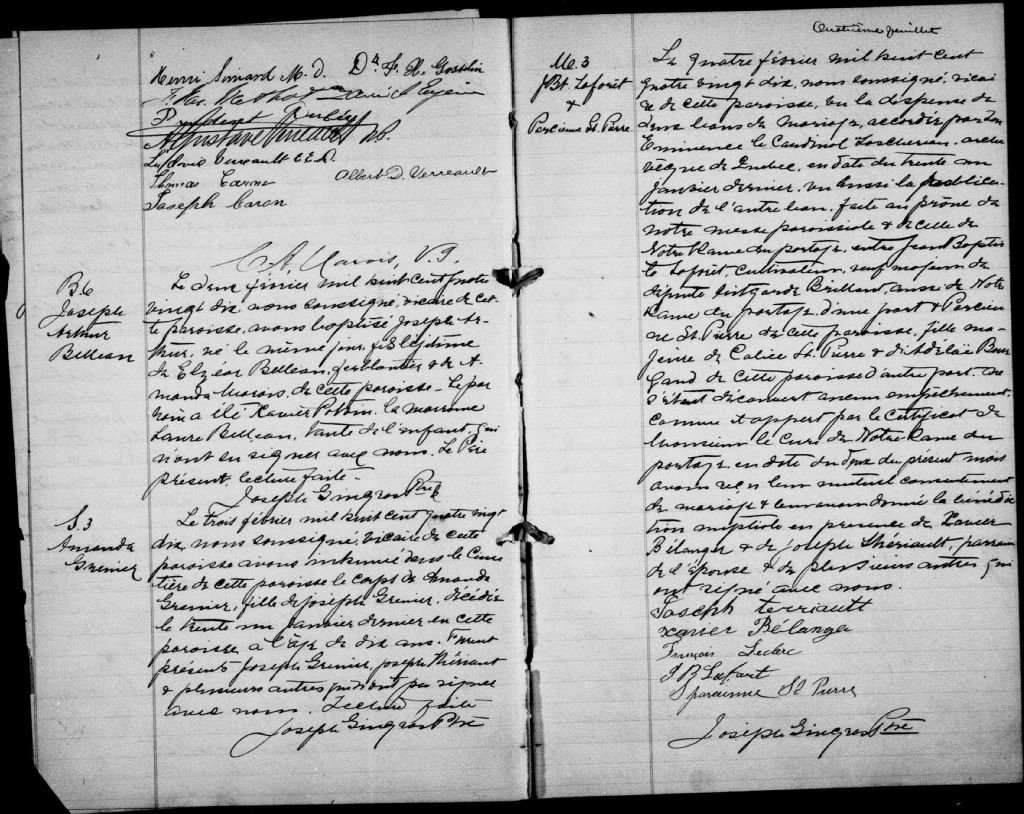 Henri Simard M. D. Dr F. X. Gosselin
Ludovic Verreault E.E.D.
Thomas Caron Albert D. Verreault
Joseph Caron
C A. Marois, V. G.
B.6
Joseph
Arthur
Belleau
Le deux février mil huit cent quatre
vingt dix, nous soussigné, vicaire de cet-
te paroisse, avons baptisé Joseph Ar-
thur, né le même jour, fils légitime
de Elzéar Belleau, ferblantier & de A-
manda Marois, de cette paroisse. Le par
rain a été Xavier Potvin, la marraine
Laure Belleau, tante de l'enfant, qui
n'ont su signer avec nous. Le Père
présent, lecture faite.
Joseph Gingras Ptre
S.3
Amanda
Grenier
Le trois février mil huit cent quatre vingt
dix, nous soussigné, vicaire de cette
paroisse avons inhumé dans le Cime
tière de cette paroisse le corps de Amanda
Grenier, fille de Joseph Grenier, décédée
le trente un janvier dernier en cette
paroisse, à l'âge de dix ans. Furent
présents Joseph Grenier, Joseph Thériault
& plusieurs autres qui n'ont pu signer
avec nous. Lecture faite
Joseph Gingras Ptre
Quatrième feuillet
M.3
J Bt. Laforêt
&
Parcienne St. Pierre
Le quatre février mil huit cent
quatre vingt dix, nous soussigné, vicai
re de cette paroisse, vu la dispense de
deux bans de mariage, accordée par Son
Eminence le Cardinal Taschereau, arche
vêque de Québec, en date du trente un
janvier dernier, vu aussi la publica-
tion de l'autre ban, faite au prône de
notre messe paroissiale & de celle de
Notre Dame du portage, entre Jean Baptis
te Laforêt, cultivateur, veuf majeur de
défunte Luitgarde Brillant, aussi de Notre
Dame du portage, d'une part & Parcien
ne St. Pierre de cette paroisse, fille ma-
jeure de St. Pierre & d'Adélaïde
de cette paroisse d'autre part, ne
s'étant découvert aucun empêchement,
comme il appert par le certificat de
Monsieur le Curé de Notre Dame du
portage, en date du deux du présent mois
avons reçu leur mutuel consentement
de mariage & leur avons donné la bénédic
tion nuptiale en présence de Xavier
Bélanger & de Joseph Thériault, parrain
de l'épouse & de plusieurs autres qui
ont signé avec nous.
Joseph terriault
Xavier Bélanger
François Leclerc
J B Lafort
parcienne St Pierre
Joseph Gingras Ptre